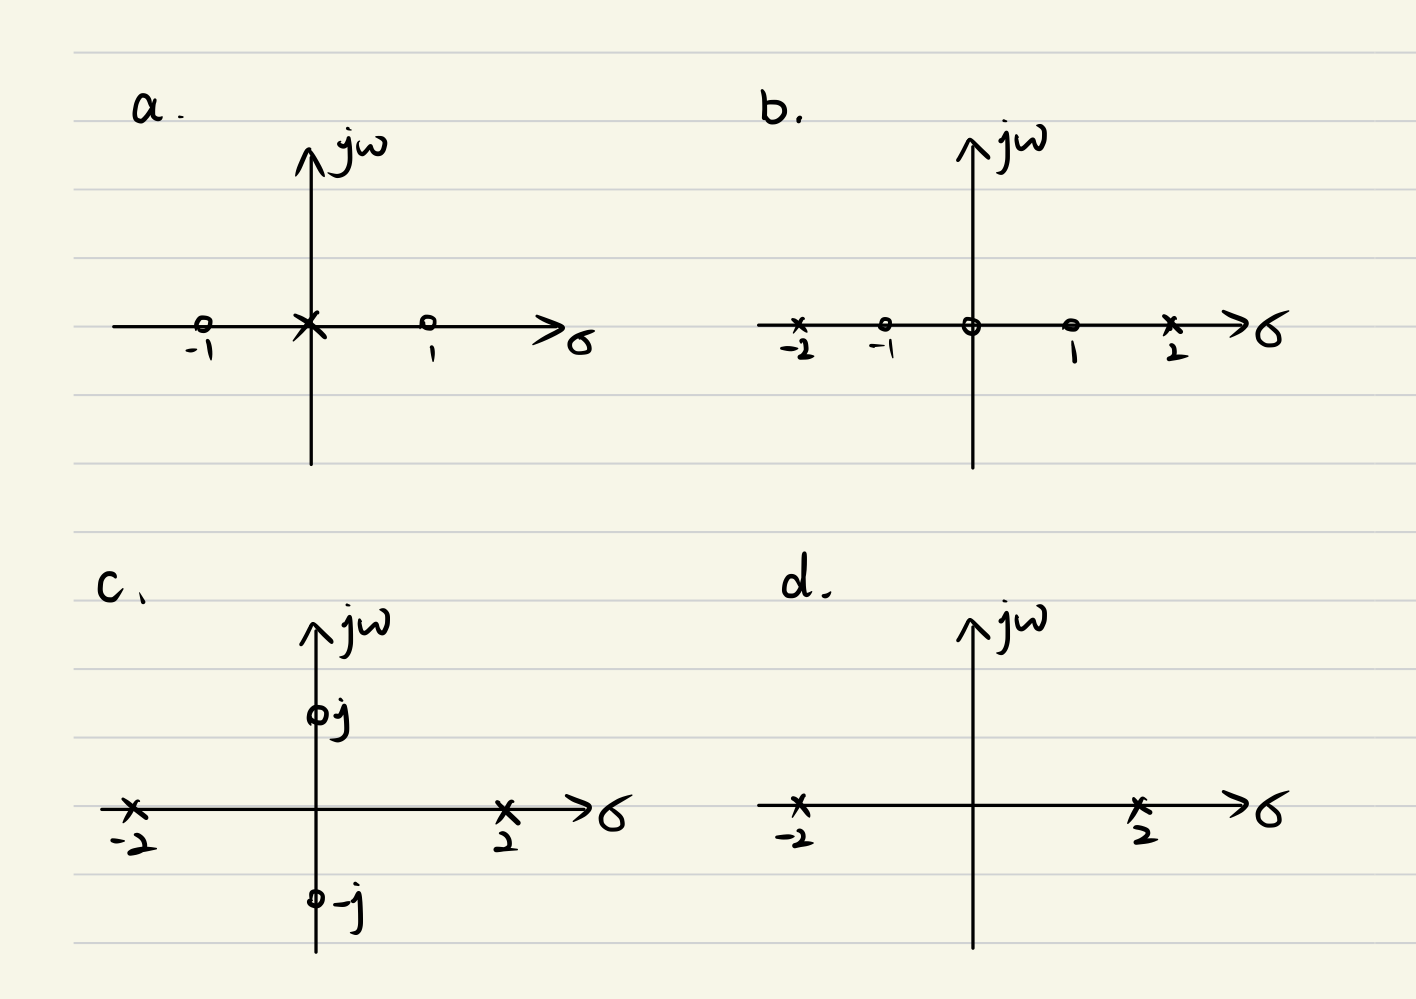 a.
jω
-1
1
σ
b.
jω
-2
-1
1
2
σ
c.
jω
j
-2
2
σ
-j
d.
jω
-2
2
σ